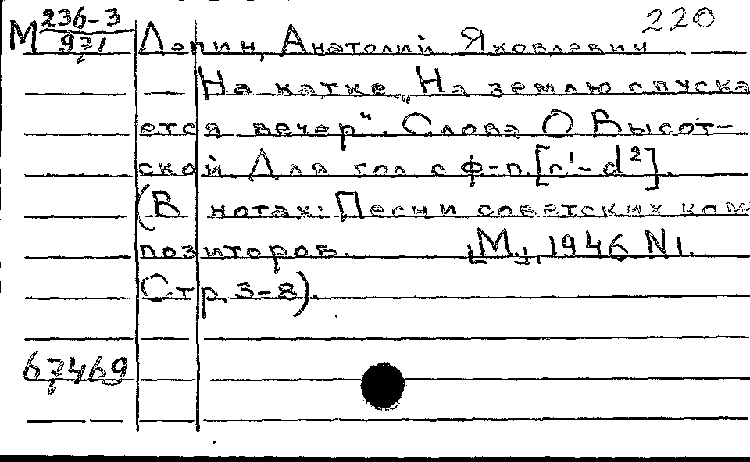 220
М 236-3
971
Лепин, Анатолий Яковлевич
На катке „На землю спуска
ется вечер". Слова О Высот-
ской Для гол с ф-п. [c¹- d²].
(В нотах: Песни советских ком
позиторов. [М.], 1946 N1.
Стр. 3-8).
67469